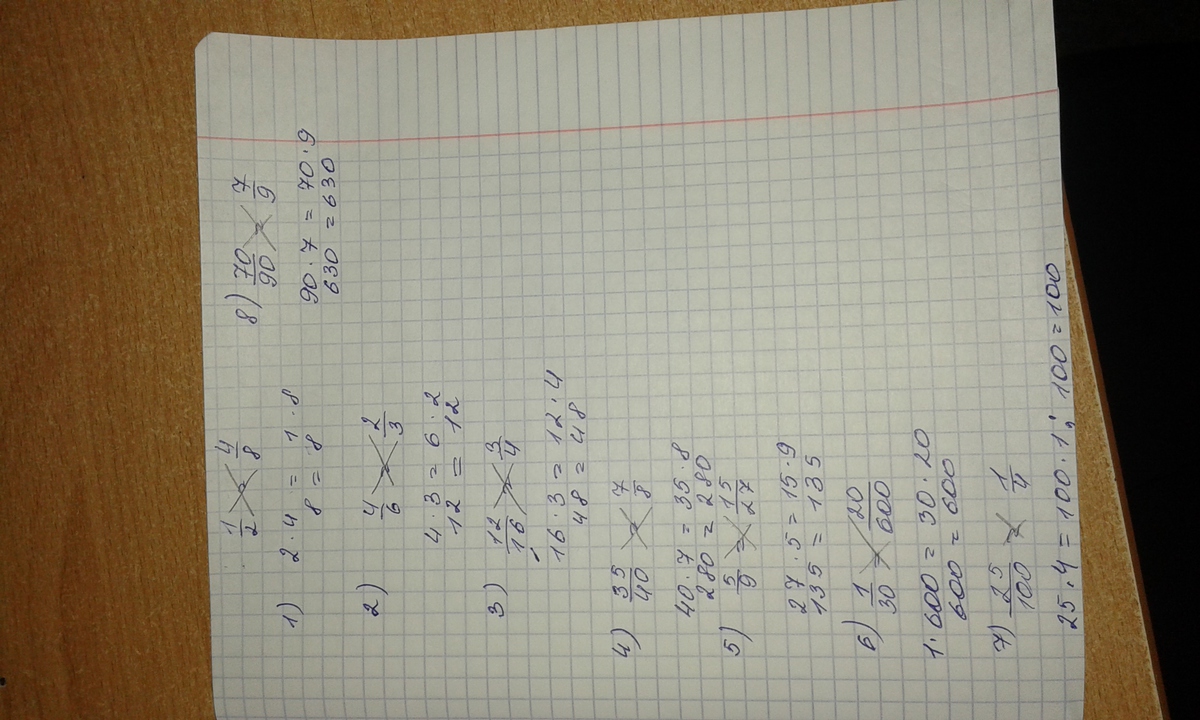 1/2 = 4/8
1) 2 · 4 = 1 · 8
8 = 8
2) 4/6 = 2/3
4 · 3 = 6 · 2
12 = 12
3) 12/16 = 3/4
16 · 3 = 12 · 4
48 = 48
4) 35/40 = 7/8
40 · 7 = 35 · 8
280 = 280
5) 5/9 = 15/27
27 · 5 = 15 · 9
135 = 135
6) 1/30 = 20/600
1 · 600 = 30 · 20
600 = 600
7) 25/100 = 1/4
25 · 4 = 100 · 1; 100 = 100
8) 70/90 = 7/9
90 · 7 = 70 · 9
630 = 630